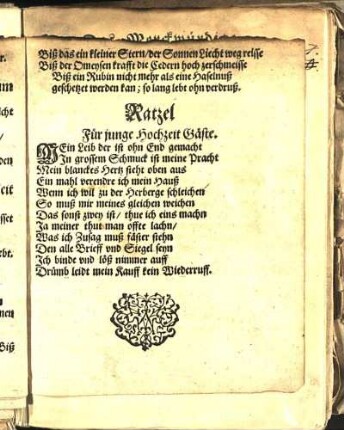 Biß das ein kleiner Stern/der Sonnen Liecht weg reisse
Biß der Omeysen krafft die Cedern hoch zerschmeisse
Biß ein Rubin nicht mehr als eine Haselnuß
geschetzet werden kan; so lang lebt ohn verdruß.
Ratzel
Für junge Hochzeit Gäste.
MEin Leib der ist ohn End gemacht
In grossem Schmuck ist meine Pracht
Mein blanckes Hertz steht oben aus
Ein mahl verendre ich mein Hauß
Wenn ich wil zu der Herberge schleichen/
So muß mir meines gleichen weichen
Das sonst zwey ist/ thue ich eins machn
Ja meiner thut man offte lachn/
Was ich Zusag muß fäster stehn
Den alle Brieff vnd Siegel seyn
Ich binde vnd löß nimmer auff
Drümb leidt mein Kauff kein Wiederruff.